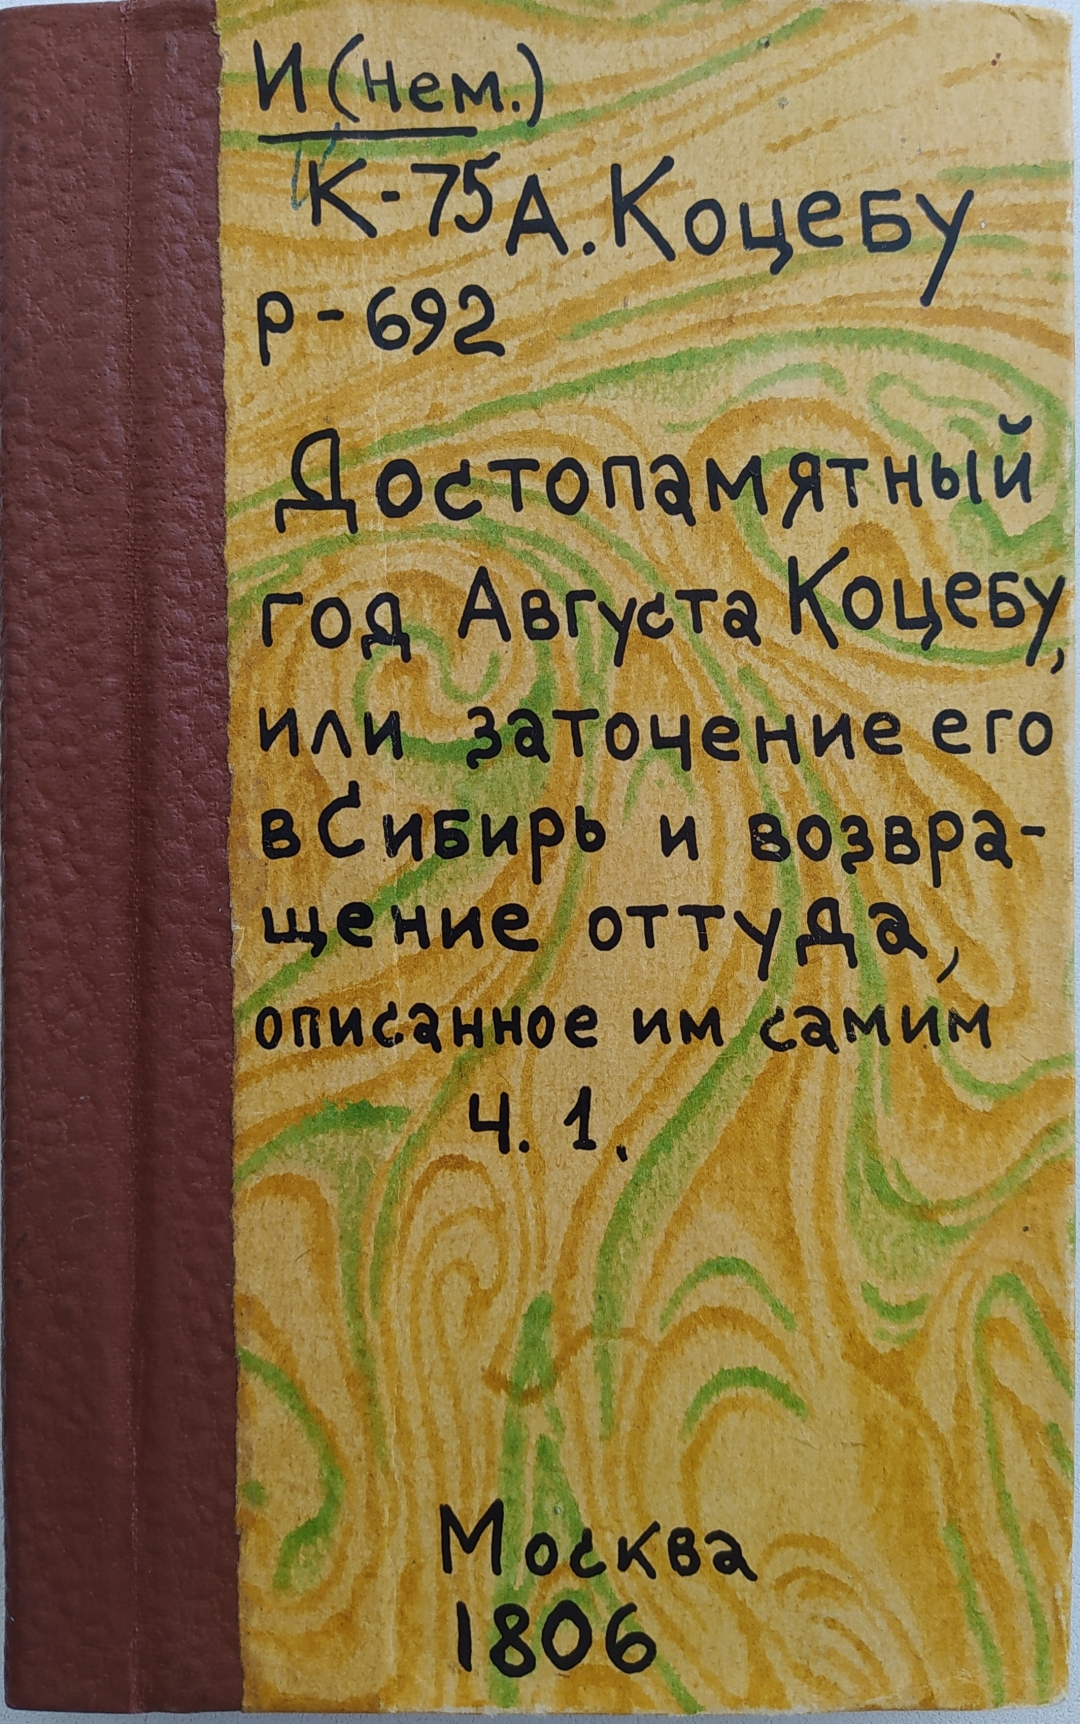 И (нем.)
К-75 А. Коцебу
Р-692
Достопамятный
год Августа Коцебу,
или заточение его
в Сибирь и возвра-
щение оттуда,
описанное им самим
Ч. 1.
Москва
1806